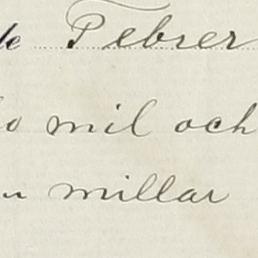 de Febrer
mil och
millar